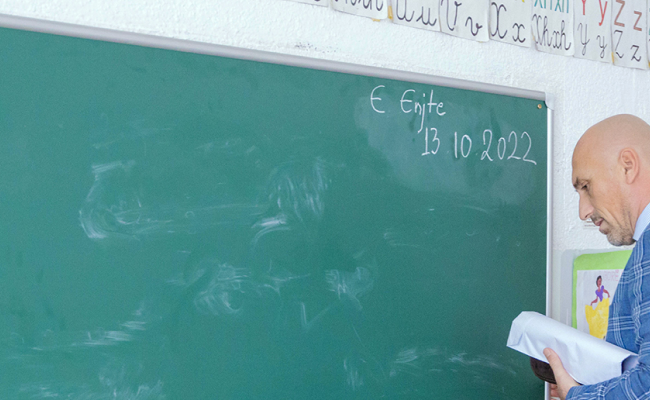 U u V v X x Xh xh Y y Z z
E Enjte
13 10 2022